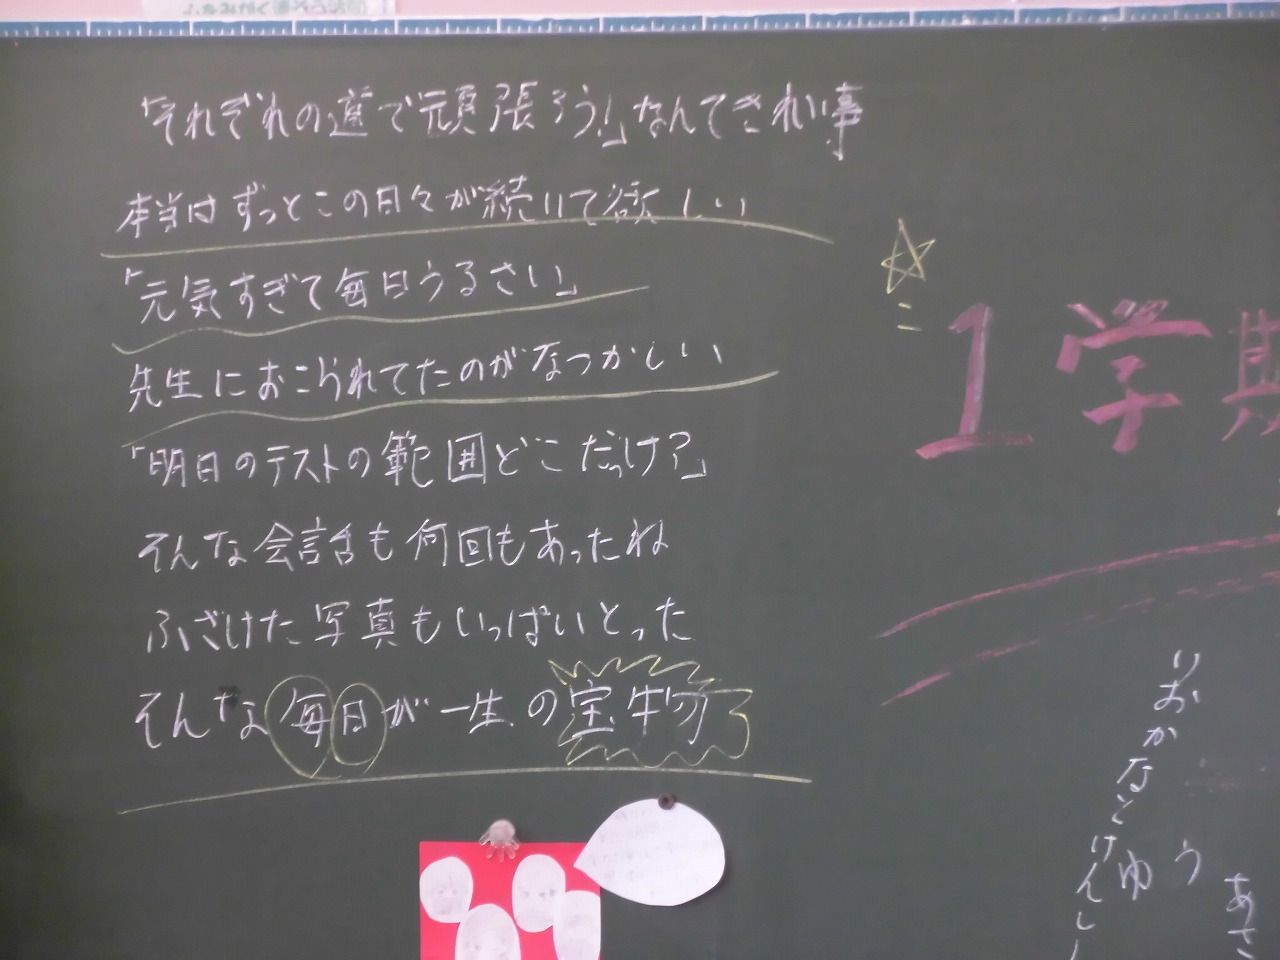 「それぞれの道で頑張ろう!」なんてきれい事
本当はずっとこの日々が続いて欲しい
「元気すぎて毎日うるさい」
先生におこられてたのがなつかしい
「明日のテストの範囲どこだっけ?」
そんな会話も何回もあったね
ふざけた写真もいっぱいとった
そんな毎日が一生の宝物
1学期
りおかなとけんしー
ゆう
あさ